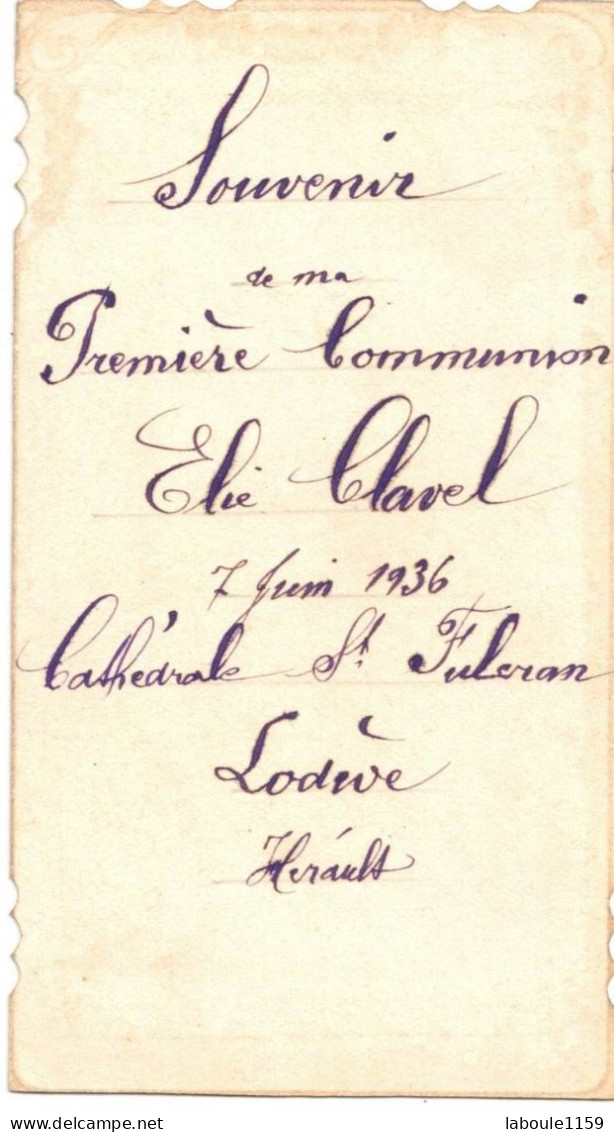 Souvenir
de ma
Première Communion
Elie Clavel
7 Juin 1936
Cathédrale St. Fulcran
Lodève
Herault
delcampe.net
laboule1159